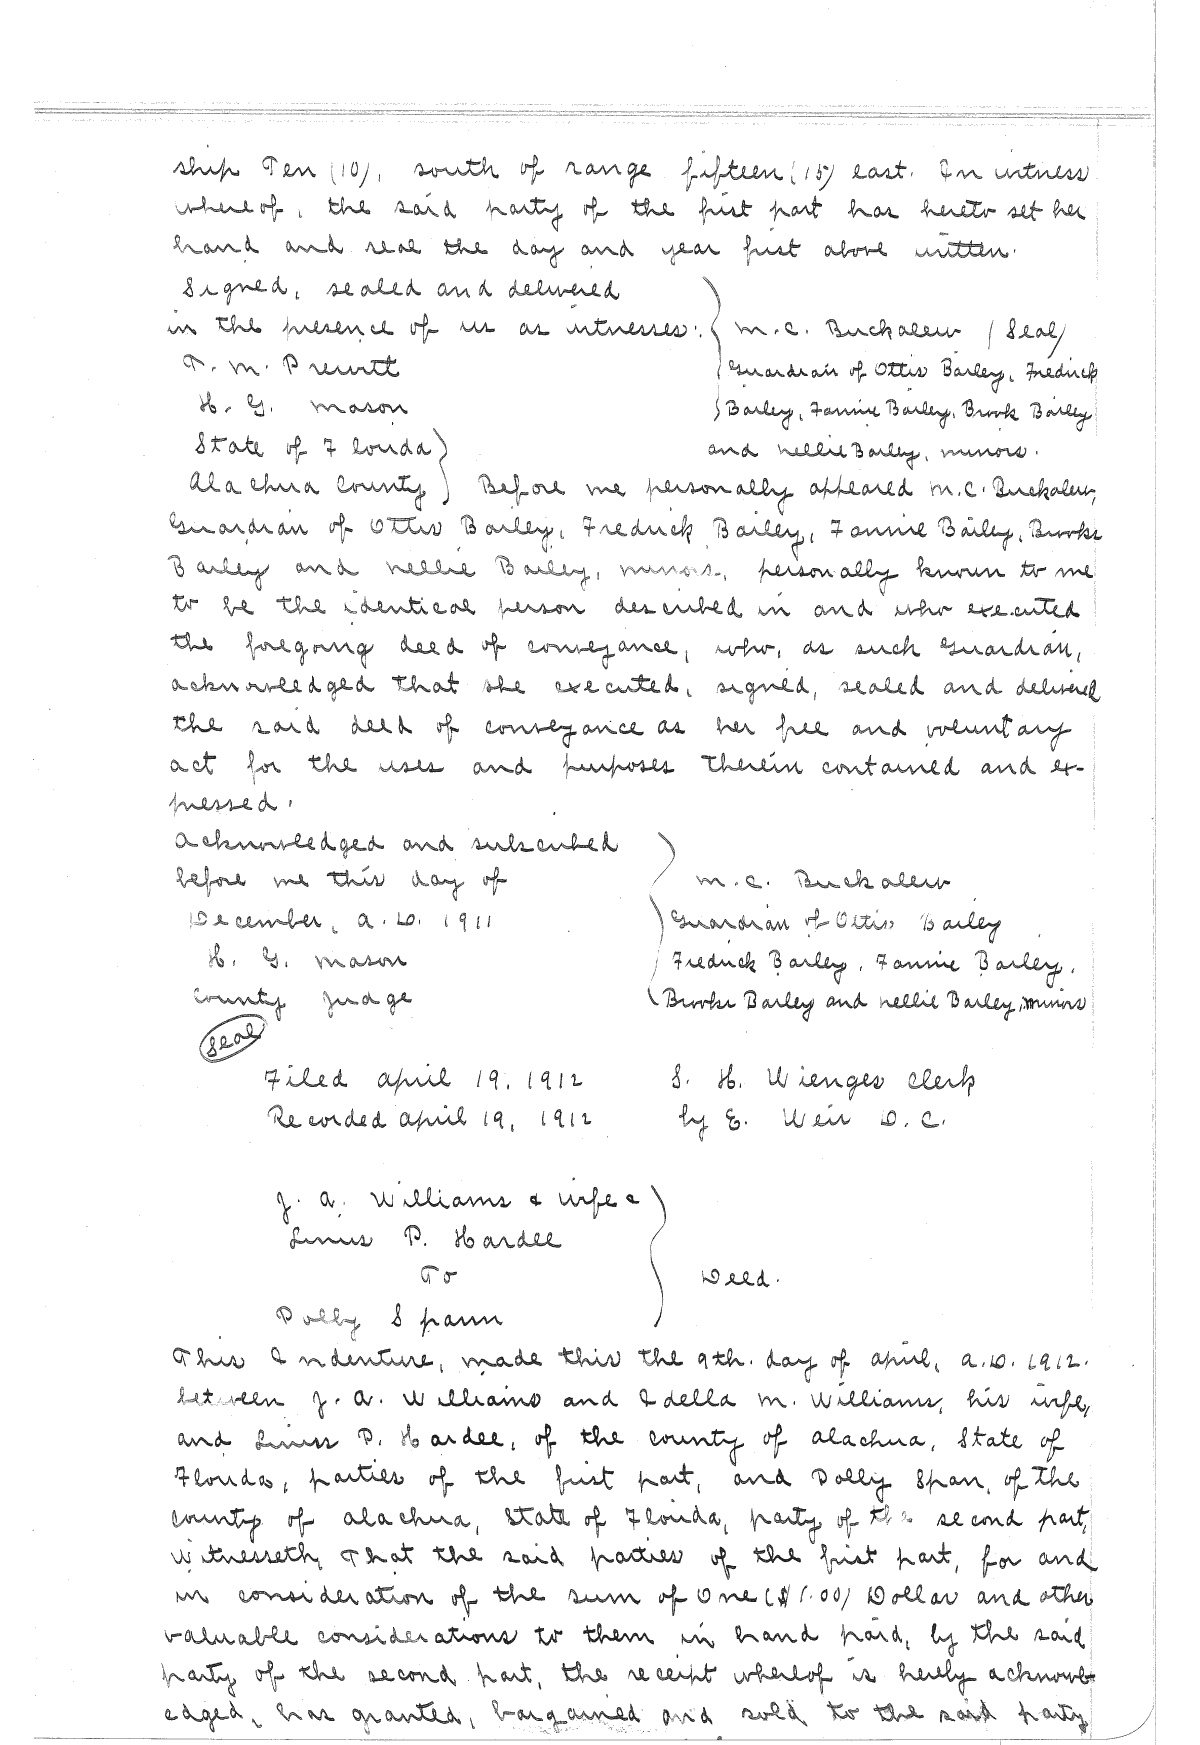 ship Ten (10), south of range fifteen (15) east. In witness
whereof, the said party of the first part has hereto set her
hand and seal the day and year first above written.
Signed, sealed and delivered
in the presence of us as witnesses:
M. C. Buckalew (Seal)
T. M. Prewitt
Guardian of Ottis Bailey, Fredrick
H. G. Mason
Bailey, Fannie Bailey, Brook Bailey
State of Florida
and Nellie Bailey, minors.
Alachua County Before me personally appeared M. C. Buckalew,
Guardian of Ottis Bailey, Fredrick Bailey, Fannie Bailey, Brooks
Bailey and Nellie Bailey, minors, personally known to me
to be the identical person described in and who executed
the foregoing deed of conveyance, who, as such Guardian,
acknowledged that she executed, signed, sealed and delivered
the said deed of conveyance as her free and voluntary
act for the uses and purposes therein contained and ex-
pressed.
Acknowledged and subscribed
before me this day of
M. C. Buckalew
December, A. D. 1911
Guardian of Ottis Bailey
H. G. Mason
Fredrick Bailey, Fannie Bailey,
County Judge
Brooks Bailey and Nellie Bailey, minors
Seal
Filed April 19, 1912 S. H. Wienges Clerk
Recorded April 19, 1912 by E. Weir D. C.
J. A. Williams & wife &
Linus P. Hardee
To
Deed.
Dolly Spann
This Indenture, made this the 9th. day of April, A. D. 1912.
between J. A. Williams and Idella M. Williams, his wife,
and Linus P. Hardee, of the county of Alachua, State of
Florida, parties of the first part, and Dolly Span, of the
county of Alachua, State of Florida, party of the second part,
Witnesseth, That the said parties of the first part, for and
in consideration of the sum of One ($1.00) Dollar and other
valuable considerations to them in hand paid, by the said
party of the second part, the receipt whereof is hereby acknowl-
edged, has granted, bargained and sold to the said party